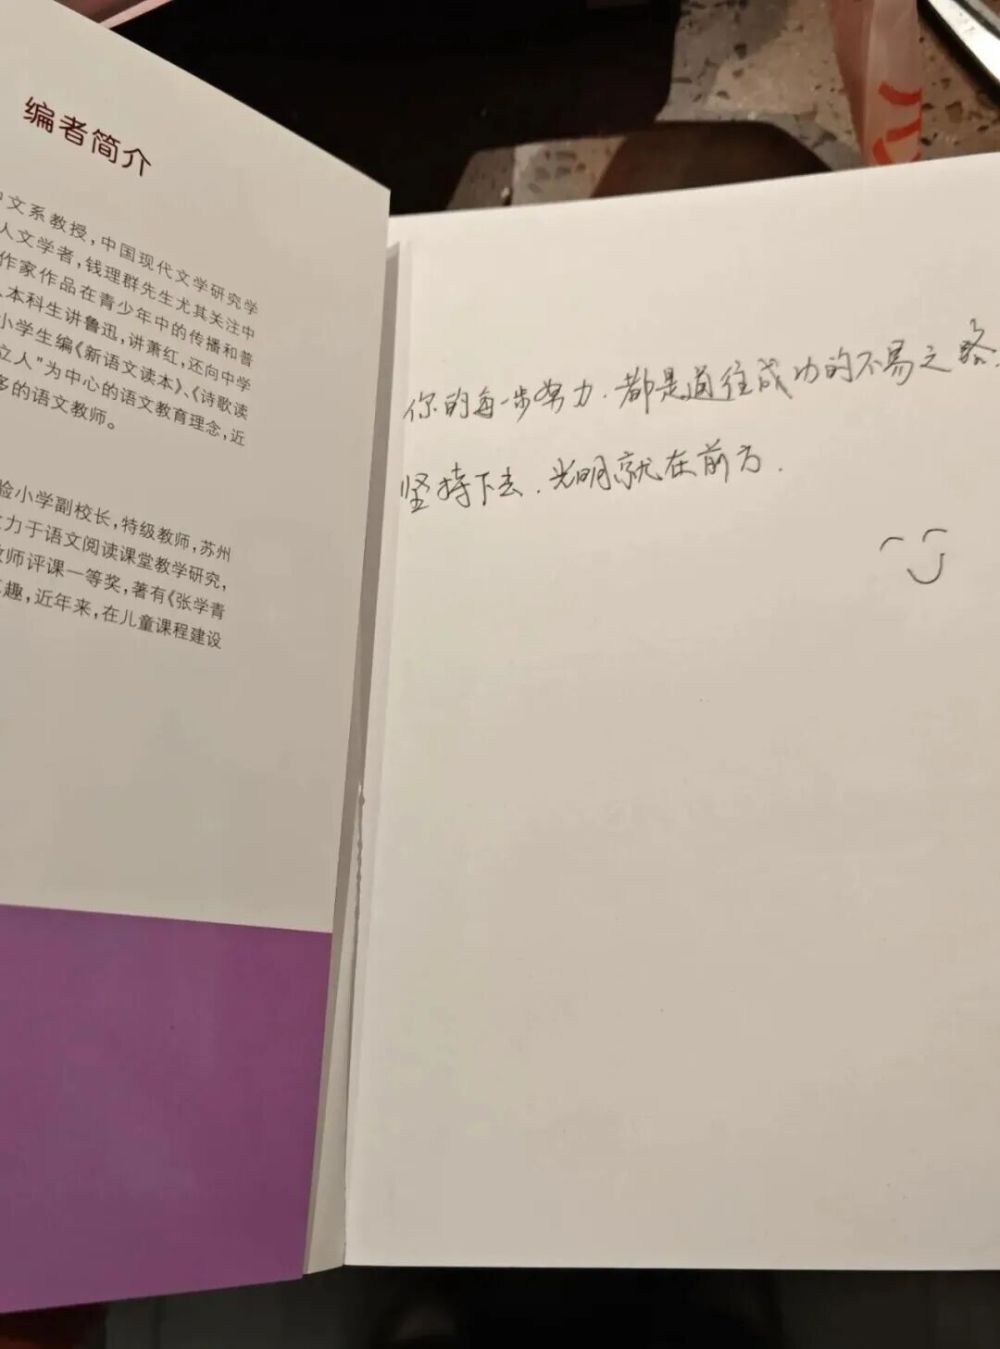 编者简介
中文系教授，中国现代文学研究学
人文学者，钱理群先生尤其关注中
作家作品在青少年中的传播和普
本科生讲鲁迅，讲萧红，还向中学
小学生编《新语文读本》、《诗歌读
立人”为中心的语文教育理念，近
多的语文教师。
验小学副校长，特级教师，苏州
力于语文阅读课堂教学研究，
教师评课一等奖，著有《张学青
趣，近年来，在儿童课程建设
你的每一步努力.都是通往成功的不易之路.
坚持下去.光明就在前方.